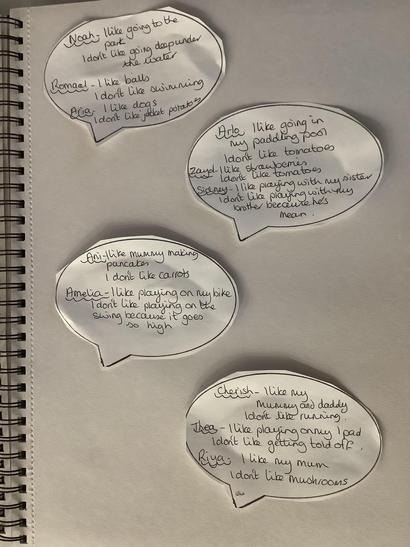 Noah - I like going to the
park
I dont like going deep under
the water
Romael - I like balls
I dont like swimming
Aria - I like dogs
I dont like jacket potatoes
Arlo I like going in
my paddling pool
I dont like tomatoes
Zayd - I like strawberries
I dont like tomatoes
Sidney - I like playing with my sister
I dont like playing with my
brother because he's
mean.
Ani - I like mummy making
pancakes
I dont like carrots
Amelia - I like playing on my bike
I dont like playing on the
swing because it goes
so high
Cherish - I like my
mummy and daddy
I dont like running.
Theo - I like playing on my I pad
I dont like getting told off.
Riya - I like my mum
I dont like mushrooms